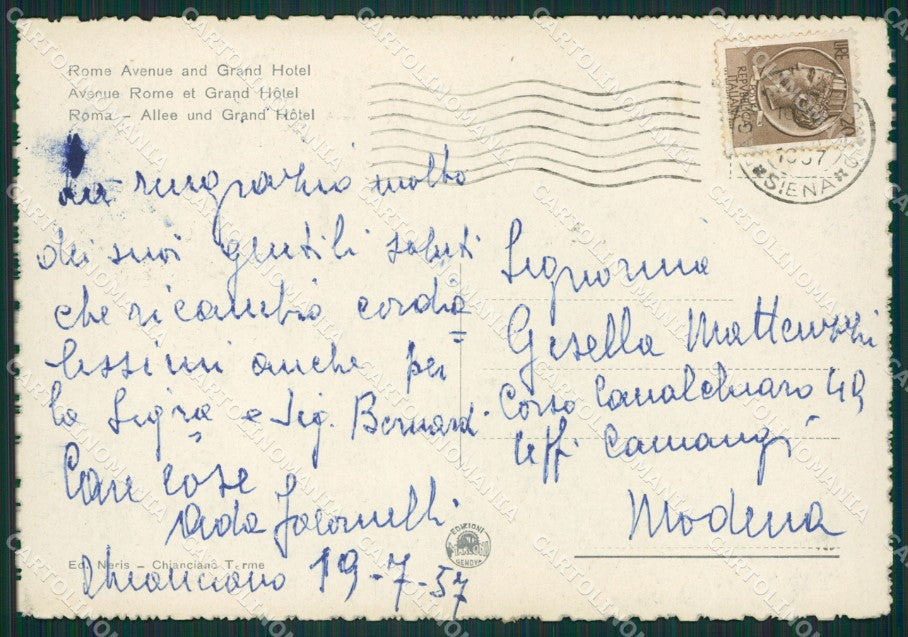 Rome Avenue and Grand Hotel
Avenue Rome et Grand Hôtel
Roma - Allee und Grand Hôtel
ringrazio molto
dei suoi gentili saluti
che ricambio cordia=
lissimi anche per
la Sig.ra e Sig. Bernardi
Care cose
Chianciano 19-7-57
Ed. Neris - Chianciano Terme
EDIZIONI
GENOVA
REPUBBLICA
ITALIANA
20
SIENA
Signorina
Gisella Matteuzzi
Corso Canalchiaro 49
Uffi
Modena
CARTOLINOMANIA